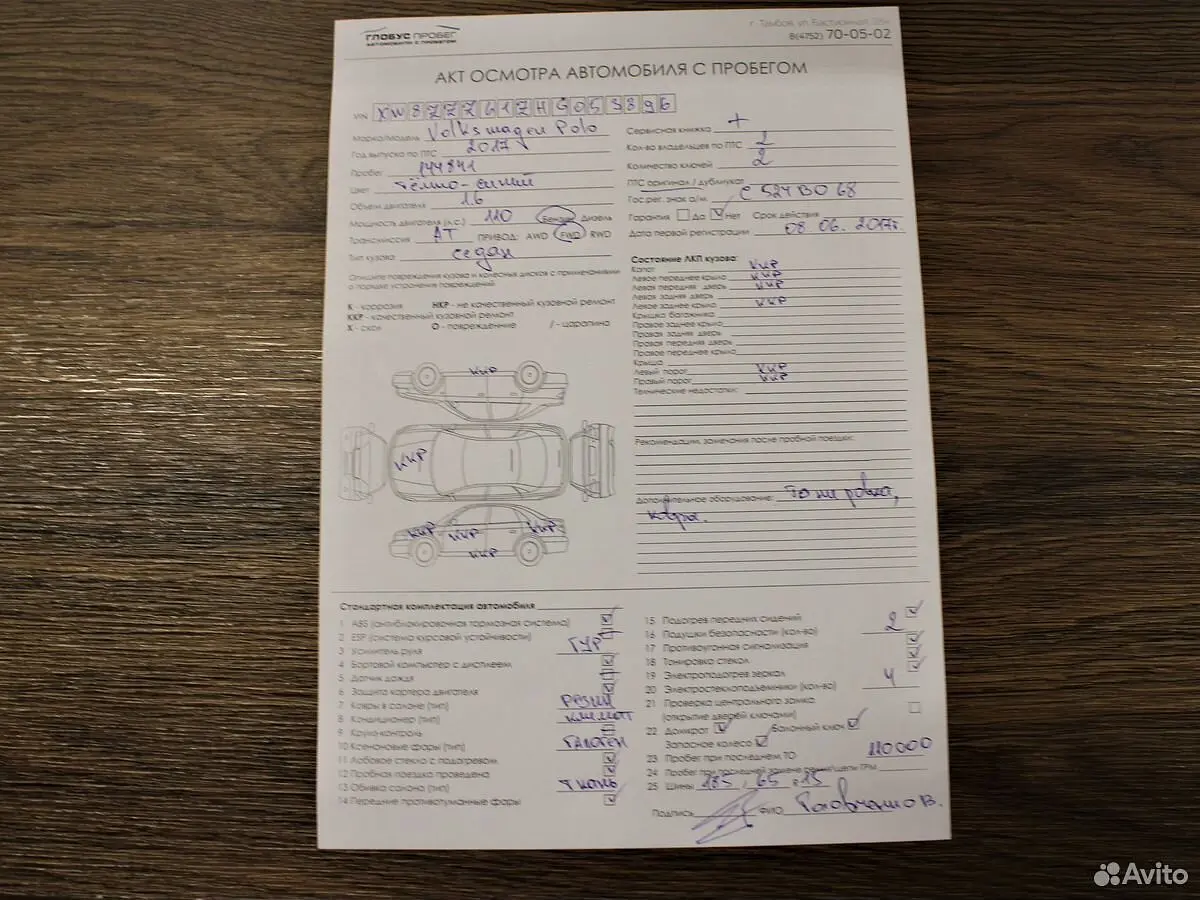 ГЛОБУС ПРОБЕГ
АВТОМОБИЛИ С ПРОБЕГОМ
г. Тамбов, ул. Бастионная
8(4752) 70-05-02
АКТ ОСМОТРА АВТОМОБИЛЯ С ПРОБЕГОМ
VIN XW8ZZZ61ZHG053896
Марка/Модель Volkswagen Polo
Год выпуска по ПТС 2017
Пробег 144841
Цвет тёмно-синий
Объем двигателя 1.6
Мощность двигателя (л.с.) 110 Бензин Дизель
Трансмиссия АТ ПРИВОД: AWD FWD RWD
Тип кузова седан
Опишите повреждения кузова и колесных дисков с примечаниями
о порядке устранения повреждений
К - коррозия НКР - не качественный кузовной ремонт
ККР - качественный кузовной ремонт
Х - скол О - повреждение / - царапина
ККР
ККР
ККР ККР ККР
ККР
Сервисная книжка +
Кол-во владельцев по ПТС
Количество ключей 2
ПТС оригинал / дубликат
Гос.рег. знак а/м С 524 ВО 68
Гарантия Да Нет Срок действия
Дата первой регистрации 08.06.2017г.
Состояние ЛКП кузова:
Капот ККР
Левое переднее крыло ККР
Левая передняя дверь ККР
Левая задняя дверь
Левое заднее крыло ККР
Крышка багажника
Правое заднее крыло
Правая задняя дверь
Правая передняя дверь
Правое переднее крыло
Крыша
Левый порог ККР
Правый порог ККР
Технические недостатки:
Рекомендации, замечания после пробной поездки:
Дополнительное оборудование: Тонировка,
ковры.
Стандартная комплектация автомобиля
1 ABS (антиблокировочная тормозная система)
2 ESP (система курсовой устойчивости)
3 Усилитель руля ГУР
4 Бортовой компьютер с дисплеем
5 Датчик дождя
6 Защита картера двигателя
7 Ковры в салоне (тип) резин
8 Кондиционер (тип) климат
9 Круиз-контроль
10 Ксеноновые фары (тип) галоген
11 Лобовое стекло с подогревом
12 Пробная поездка проведена
13 Обивка салона (тип) ткань
14 Передние противотуманные фары
15 Подогрев передних сидений
16 Подушки безопасности (кол-во) 2
17 Противоугонная сигнализация
18 Тонировка стекол
19 Электроподогрев зеркал
20 Электростеклоподъемники (кол-во) 4
21 Проверка центрального замка
(открытие дверей ключами)
22 Домкрат Балонный ключ
Запасное колесо
23 Пробег при последнем ТО 110000
24 Пробег при последней замене ремня/цепи ГРМ
25 Шины 185 / 65 R 15
Подпись ФИО В.
Avito